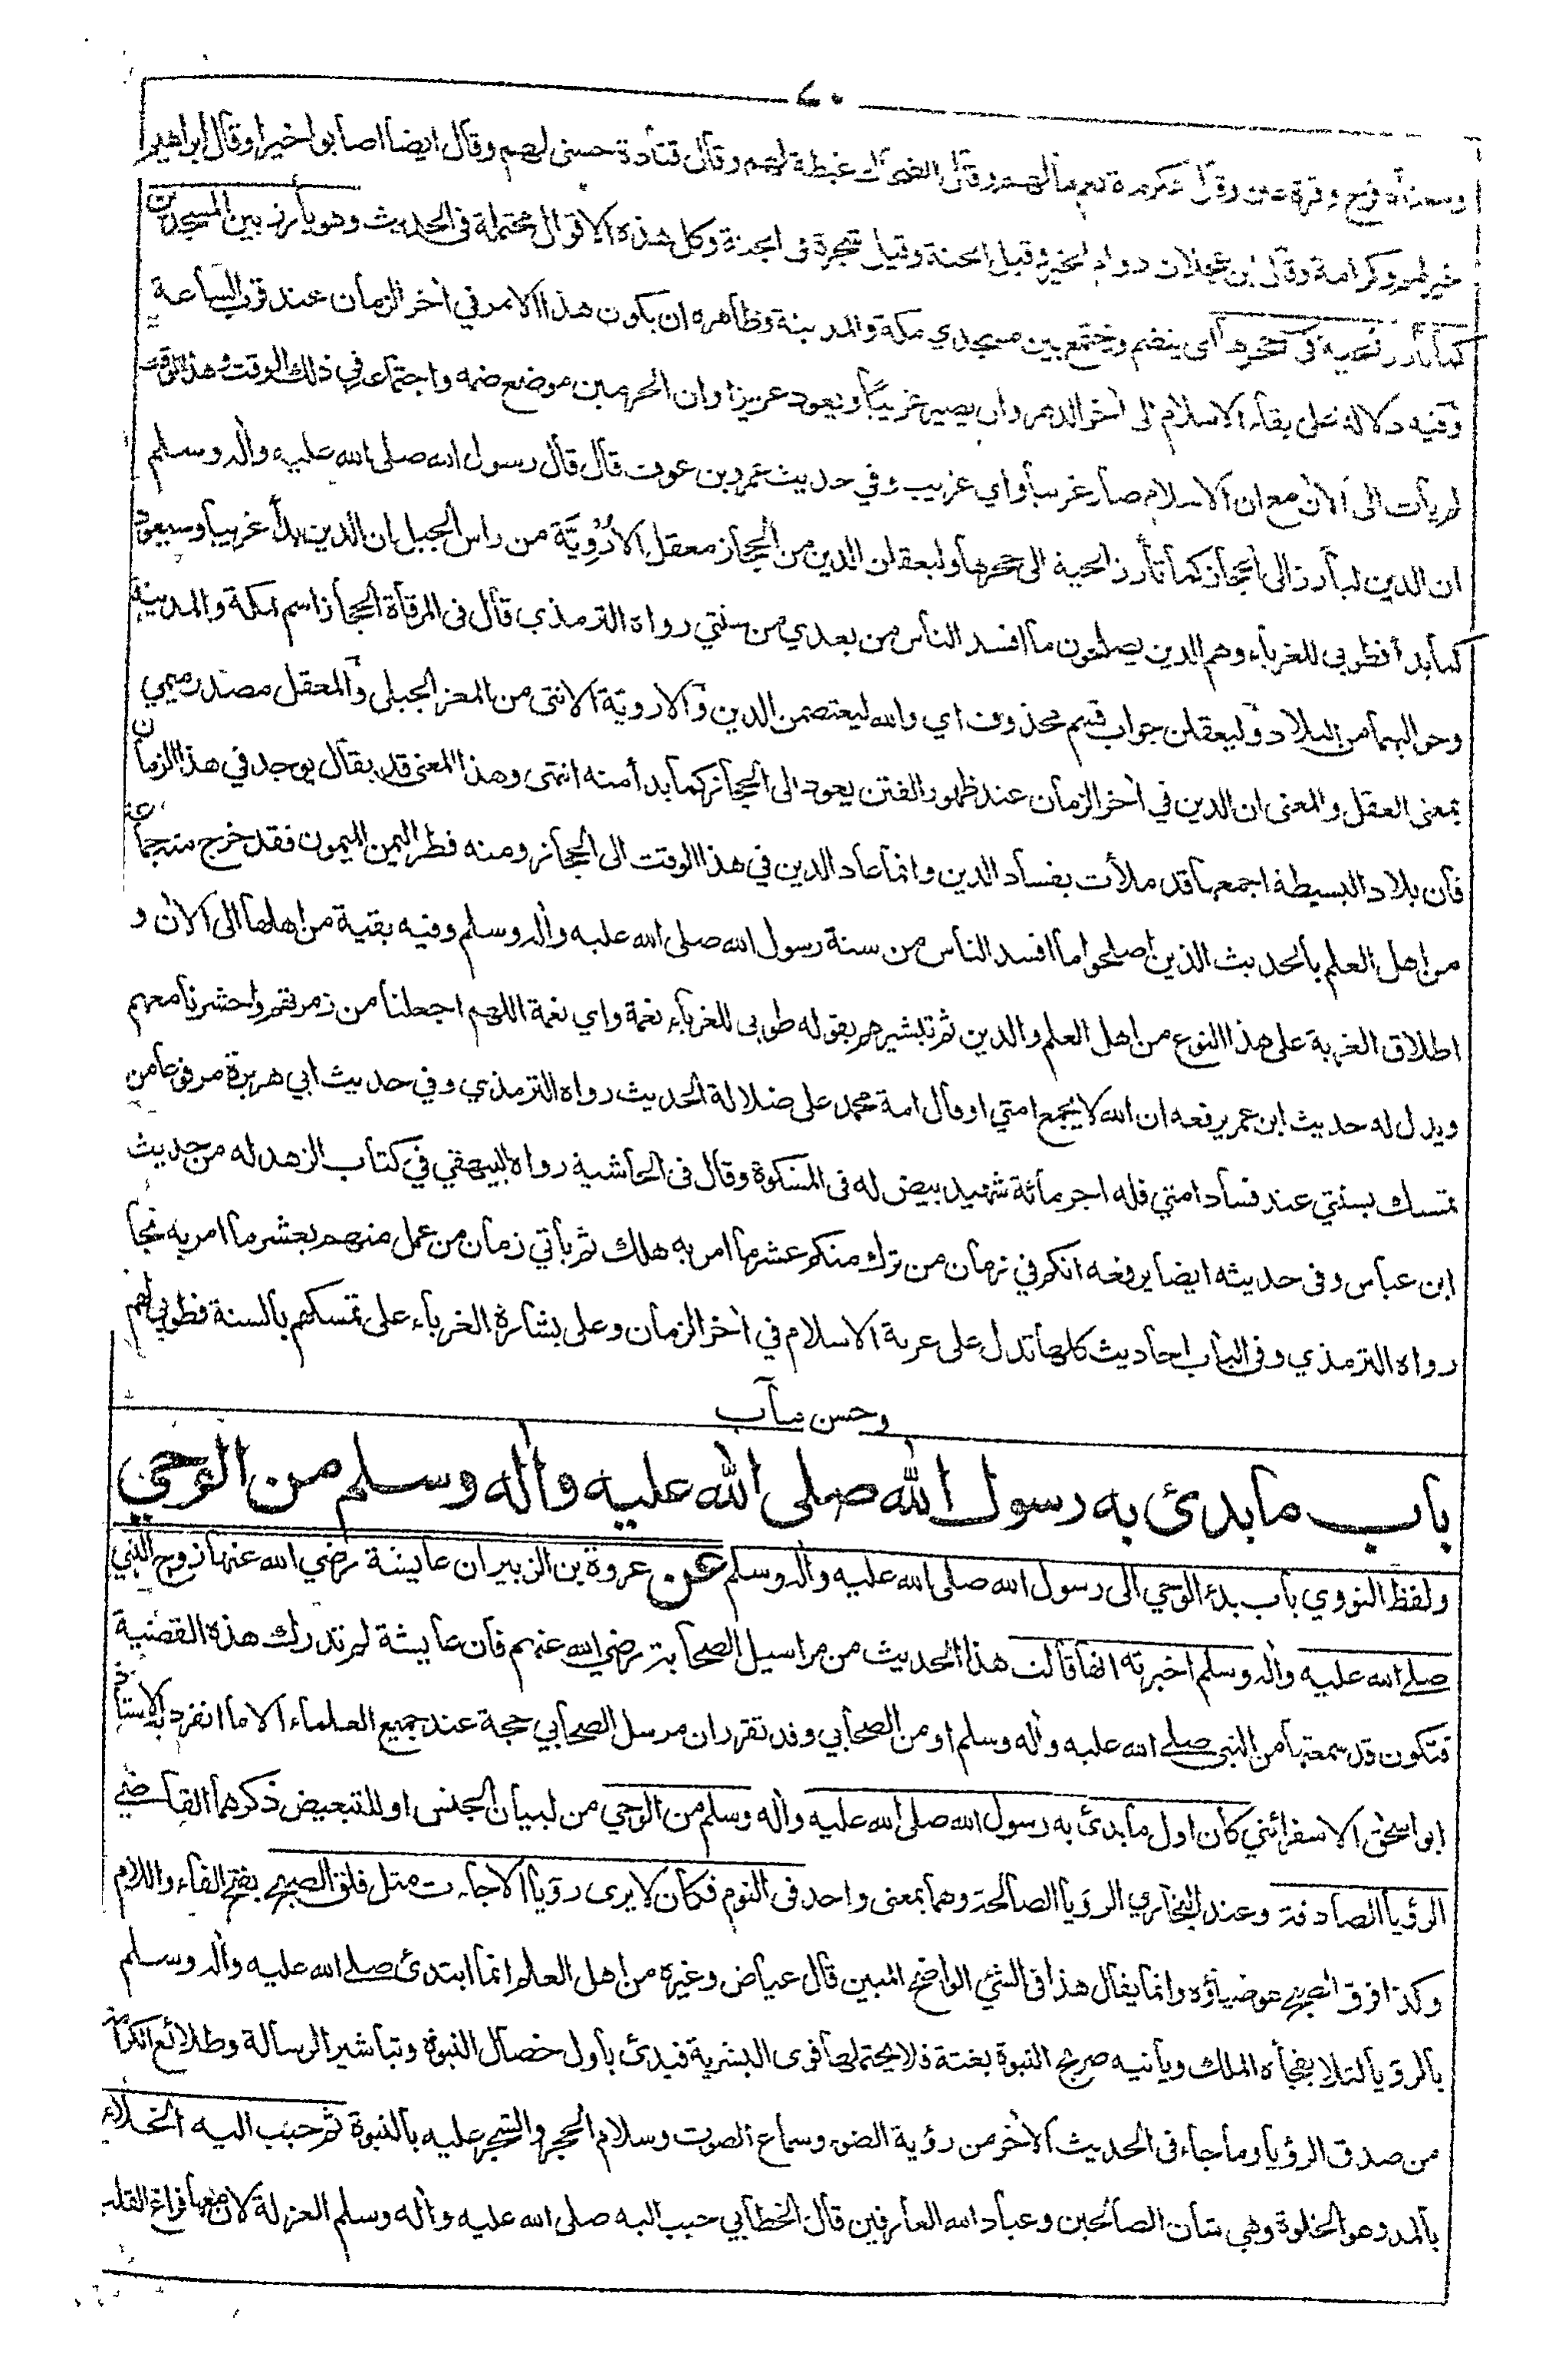 ٧٠
وسعناه فرح وقرة عين وقال عكرمة نعم مالهم وقال الضحاك غبطة لهم وقال قتادة حسنى لهم وقال ايضا اصابوا خيرا وقال ابراهيم
خير لهم وكرامة وقال ابن عجلان دوام الخير وقيل الجنة وقيل شجرة فى الجنة وكل هذه الاقوال محتملة فى الحديث وهو يأرز بين المسجدين
كما تأرز الحية فى جحرها اى ينضم ويجتمع بين مسجدي مكة والمدينة وظاهره ان يكون هذا الامر في اخر الزمان عند قرب الساعة
وفيه دلالة على بقاء الاسلام الى اخر الدهر وان يصير غريبا ويعود عزيزا وان الحرمين موضع ضمه واجتماعه في ذلك الوقت وهذا الوقت
لم يأت الى الان مع ان الاسلام صار غريبا واي غريب وفي حديث عمرو بن عوف قال قال رسول الله صلى الله عليه واله وسلم
ان الدين ليأرز الى الحجاز كما تأرز الحية الى جحرها وليعقلن الدين من الحجاز معقل الاروية من راس الجبل ان الدين بدأ غريبا وسيعود
كما بدأ فطوبى للغرباء وهم الذين يصلحون ما افسد الناس من بعدي من سنتي رواه الترمذي قال فى المرقاة الحجاز اسم لمكة والمدينة
وحواليهما من البلاد وليعقلن جواب قسم محذوف اي والله ليعتصمن الدين والاروية الانثى من المعز الجبلى والمعقل مصدر ميمي
بمعنى العقل والمعنى ان الدين في اخر الزمان عند ظهور الفتن يعود الى الحجاز كما بدأ منه انتهى وهذا المعنى قد يقال يوجد في هذا الزمان
فان بلاد البسيطة اجمعها قد ملأت بفساد الدين وانما عاد الدين في هذا الوقت الى الحجاز ومنه قطر اليمن الميمون فقد خرج منه جماعة
من اهل العلم بالحديث الذين اصلحوا ما افسد الناس من سنة رسول الله صلى الله عليه واله وسلم وفيه بقية من اهلها الى الان و
اطلاق الغربة على هذا النوع من اهل العلم والدين ثم تبشيرهم بقوله طوبى للغرباء نعمة واي نعمة اللهم اجعلنا من زمرتهم واحشرنا معهم
ويدل له حديث ابن عمر يرفعه ان الله لا يجمع امتي او قال امة محمد على ضلالة الحديث رواه الترمذي وفي حديث ابي هريرة مرفوعا من
تمسك بسنتي عند فساد امتي فله اجر مائة شهيد بيض له فى المشكوة وقال فى الحاشية رواه البيهقي في كتاب الزهد له من حديث
ابن عباس وفى حديثه ايضا يرفعه انكم في زمان من ترك منكم عشر ما امر به هلك ثم يأتي زمان من عمل منهم بعشر ما امر به نجا
رواه الترمذي وفى الباب احاديث كلها تدل على غربة الاسلام في اخر الزمان وعلى بشارة الغرباء على تمسكهم بالسنة فطوبى لهم
وحسن مآب
باب ما بدئ به رسول الله صلى الله عليه واله وسلم من الوحي
ولفظ النووي باب بدء الوحي الى رسول الله صلى الله عليه واله وسلم عن عروة بن الزبير ان عايشة رضي الله عنها زوج النبي
صلى الله عليه واله وسلم اخبرته انها قالت هذا الحديث من مراسيل الصحابة رضي الله عنهم فان عايشة لم تدرك هذه القضية
فتكون قد سمعتها من النبي صلى الله عليه واله وسلم او من الصحابي وقد تقرر ان مرسل الصحابي حجة عند جميع العلماء الا ما انفرد به الاستاذ
ابو اسحق الاسفرائني كان اول ما بدئ به رسول الله صلى الله عليه واله وسلم من الوحي من لبيان الجنس او للتبعيض ذكرهما القاضي
الرؤيا الصادقة وعند البخاري الرؤيا الصالحة وهما بمعنى واحد فى النوم فكان لا يرى رؤيا الا جاءت مثل فلق الصبح بفتح الفاء واللام
وكذا فرق الصبح هو ضياؤه وانما يقال هذا فى الشيء الواضح المبين قال عياض وغيره من اهل العلم انما ابتدئ صلى الله عليه واله وسلم
بالرؤيا لئلا يفجأه الملك ويأتيه صريح النبوة بغتة فلا يحتملها قوى البشرية فبدئ باول خصال النبوة وتباشير الرسالة وطلائع الكرامة
من صدق الرؤيا وما جاء فى الحديث الاخر من رؤية الضوء وسماع الصوت وسلام الحجر والشجر عليه بالنبوة ثم حبب اليه الخلاء
بالمد وهو الخلوة وهي شان الصالحين وعباد الله العارفين قال الخطابي حبب اليه صلى الله عليه واله وسلم العزلة لان معها فراغ القلب